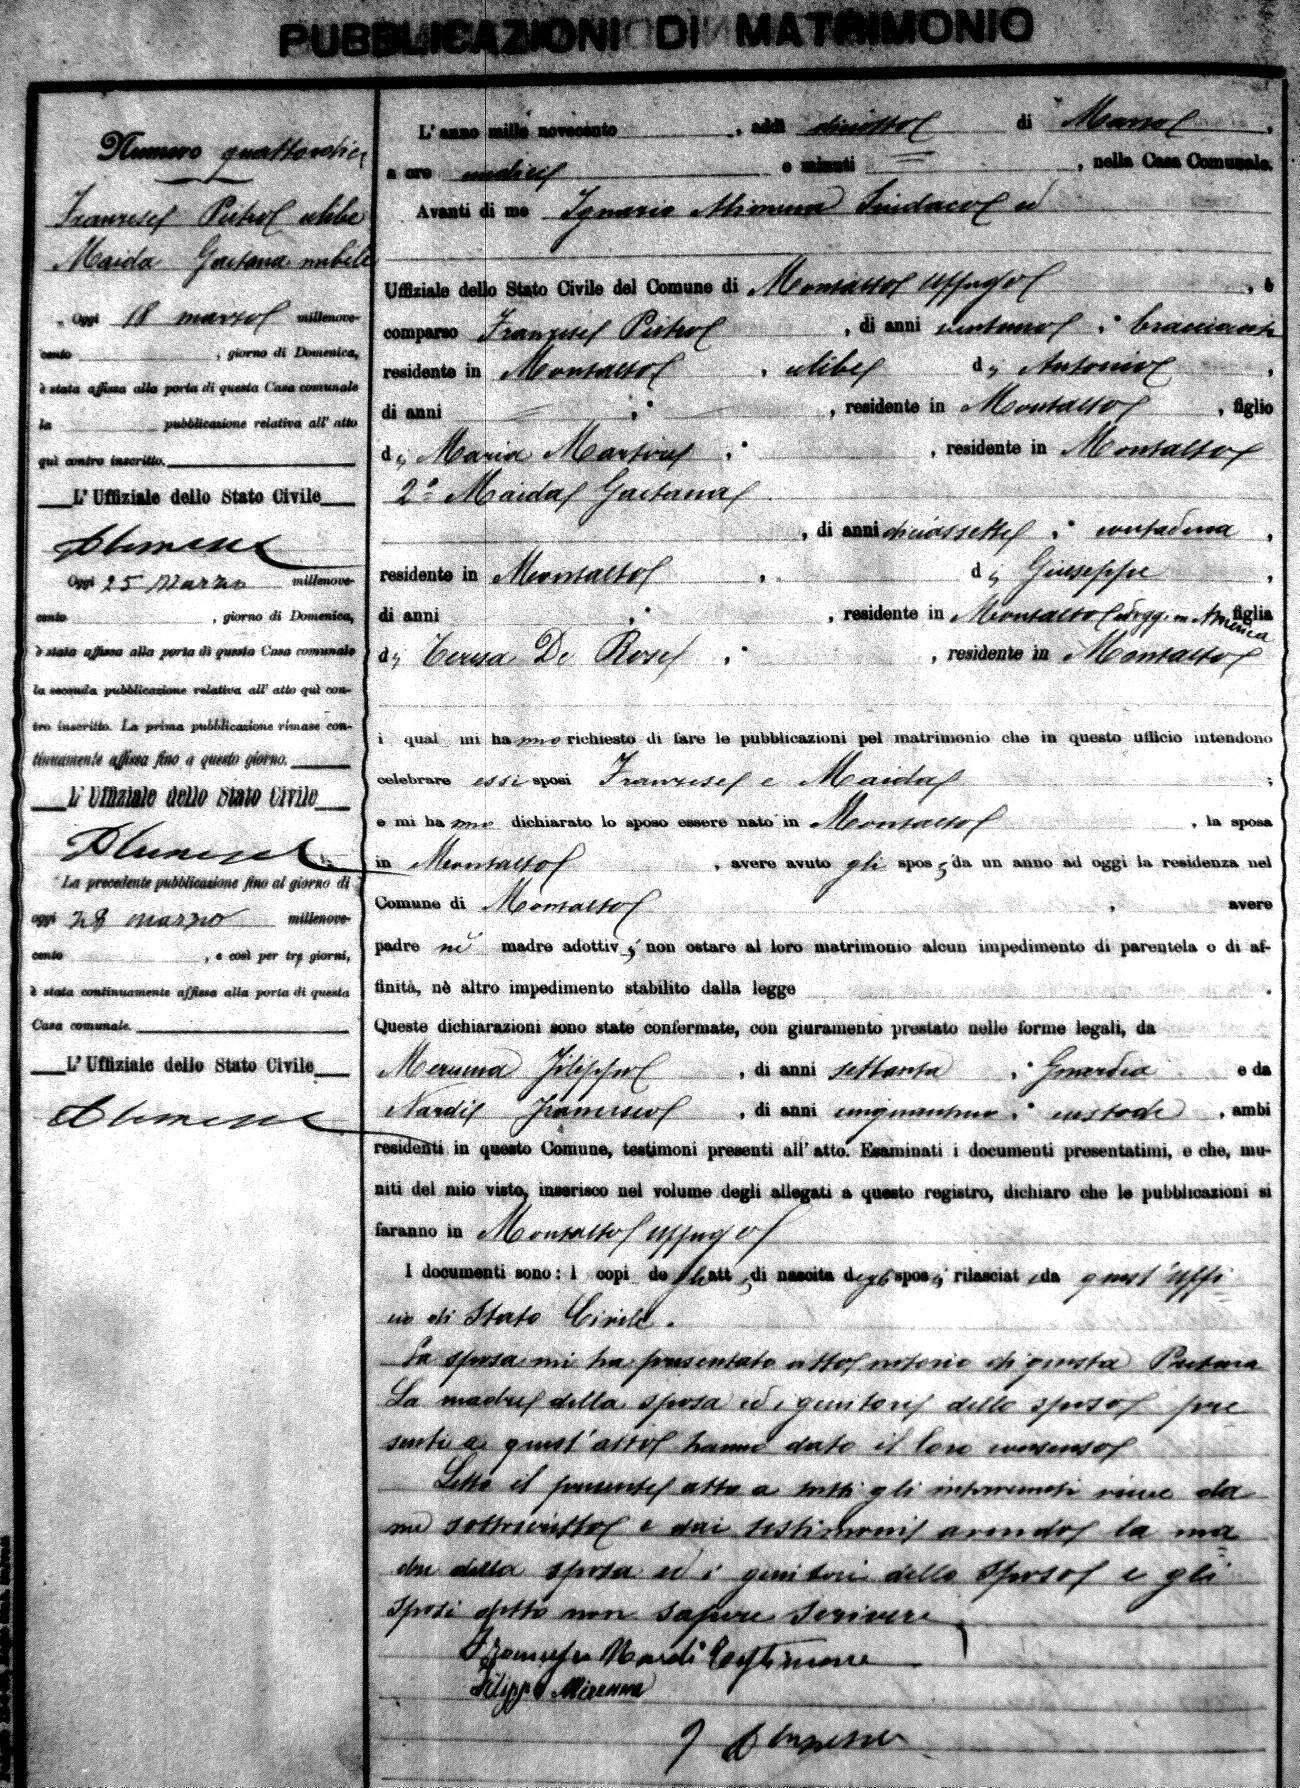 PUBBLICAZIONI DI MATRIMONIO
Numero quattordici
Franzese Pietro celibe
Maida Gaetana nubile
Oggi 18 marzo millenove-
cento , giorno di Domenica,
è stata affissa alla porta di questa Casa comunale
la pubblicazione relativa all' atto
quì contro inscritto.
L' Uffiziale dello Stato Civile
Oggi 25 Marzo millenove-
cento , giorno di Domenica,
è stata affissa alla porta di questa Casa comunale
la seconda pubblicazione relativa all' atto quì con-
tro inscritto. La prima pubblicazione rimase con-
tinuamente affissa fino a questo giorno.
L' Uffiziale dello Stato Civile
La precedente pubblicazione fino al giorno di
oggi 28 marzo millenove-
cento , e così per tre giorni,
è stata continuamente affissa alla porta di questa
Casa comunale.
L' Uffiziale dello Stato Civile
L' anno mille novecento , addì diciotto di Marzo ,
a ore undici e minuti = , nella Casa Comunale.
Avanti di me Ignazio Sindaco ed
Uffiziale dello Stato Civile del Comune di Montalto Uffugo , è
comparso Franzese Pietro , di anni ventuno , bracciante
residente in Montalto , celibe di Antonio ,
di anni , residente in Montalto , figlio
di Maria , residente in Montalto
2° Maida Gaetana
, di anni diciassette , contadina ,
residente in Montalto , di Giuseppe ,
di anni , residente in Montalto ed oggi in America figlia
di Teresa De Rose , residente in Montalto
i qual mi hanno richiesto di fare le pubblicazioni pel matrimonio che in questo ufficio intendono
celebrare essi sposi Franzese e Maida ;
e mi hanno dichiarato lo sposo essere nato in Montalto , la sposa
in Montalto , avere avuto gli sposi da un anno ad oggi la residenza nel
Comune di Montalto , avere
padre nè madre adottivi; non ostare al loro matrimonio alcun impedimento di parentela o di af-
finità, nè altro impedimento stabilito dalla legge .
Queste dichiarazioni sono state confermate, con giuramento prestato nelle forme legali, da
Filippo , di anni settanta , Guardia e da
Nardi Francesco , di anni , custode , ambi
residenti in questo Comune, testimoni presenti all' atto. Esaminati i documenti presentatimi, e che, mu-
niti del mio visto, inserisco nel volume degli allegati a questo registro, dichiaro che le pubblicazioni si
faranno in Montalto Uffugo
I documenti sono: l copi degli atti di nascita degli sposi, rilasciat da quest' Uffi
cio di Stato Civile.
La sposa mi ha presentato atto notorio di questa Pretura
La madre della sposa ed i genitori dello sposo pre
senti a quest' atto hanno dato il loro consenso
Letto il presente atto a tutti gli intervenuti viene da
me sottoscritto e dai testimoni avendo la ma
dre della sposa ed i genitori dello sposo e gli
sposi detto non sapere scrivere
Francesco Nardi Testimone
Filippo